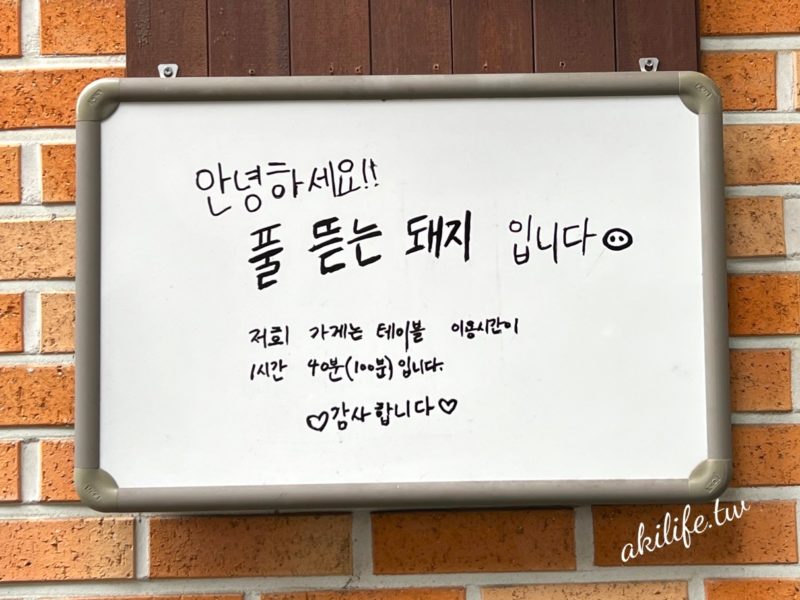 안녕하세요!!
풀 뜯는 돼지 입니다
저희 가게는 테이블 이용시간이
1시간 40분(100분)입니다.
♡감사합니다♡
akilife.tw